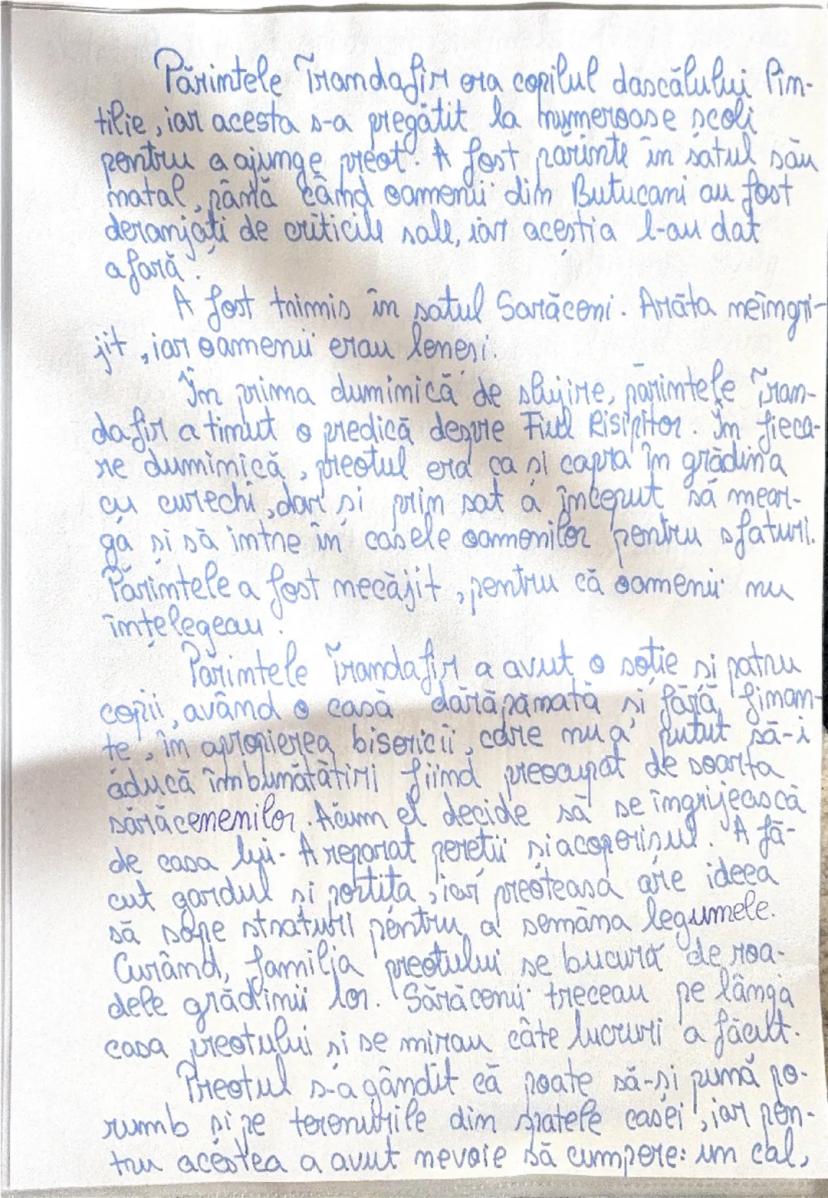 Părintele Trandafir era copilul dascălului Pin-
tilie, iar acesta s-a pregătit la numeroase școli
pentru a ajunge preot. A fost părinte în satul său
natal, până când oamenii din Butucani au fost
deranjați de criticile sale, iar aceștia l-au dat
afară.
A fost trimis în satul Sărăceni. Arăta neîngri-
jit, iar oamenii erau leneși.
În prima duminică de slujire, părintele Tran-
dafir a ținut o predică despre Fiul Risipitor. În fieca-
re duminică, preotul era ca și capra în grădina
cu curechi, dar și prin sat a început să mear-
gă și să intre în casele oamenilor pentru sfaturi.
Părintele a fost necăjit, pentru că oamenii nu
înțelegeau.
Părintele Trandafir a avut o soție și patru
copii, având o casă dărăpănată și fără finan-
țe, în apropierea bisericii, care nu a putut să-i
aducă îmbunătățiri fiind preocupat de soarta
sărăcenenilor. Acum el decide să se îngrijească
de casa lui. A reparat pereții și acoperișul. A fă-
cut gardul și portița, iar preoteasa are ideea
să sape straturi pentru a semăna legumele.
Curând, familia preotului se bucură de roa-
dele grădinii lor. Sărăcenii treceau pe lângă
casa preotului și se mirau câte lucruri a făcut.
Preotul s-a gândit că poate să-și pună po-
rumb și pe terenurile din spatele casei, iar pen-
tru acestea a avut nevoie să cumpere: un cal,